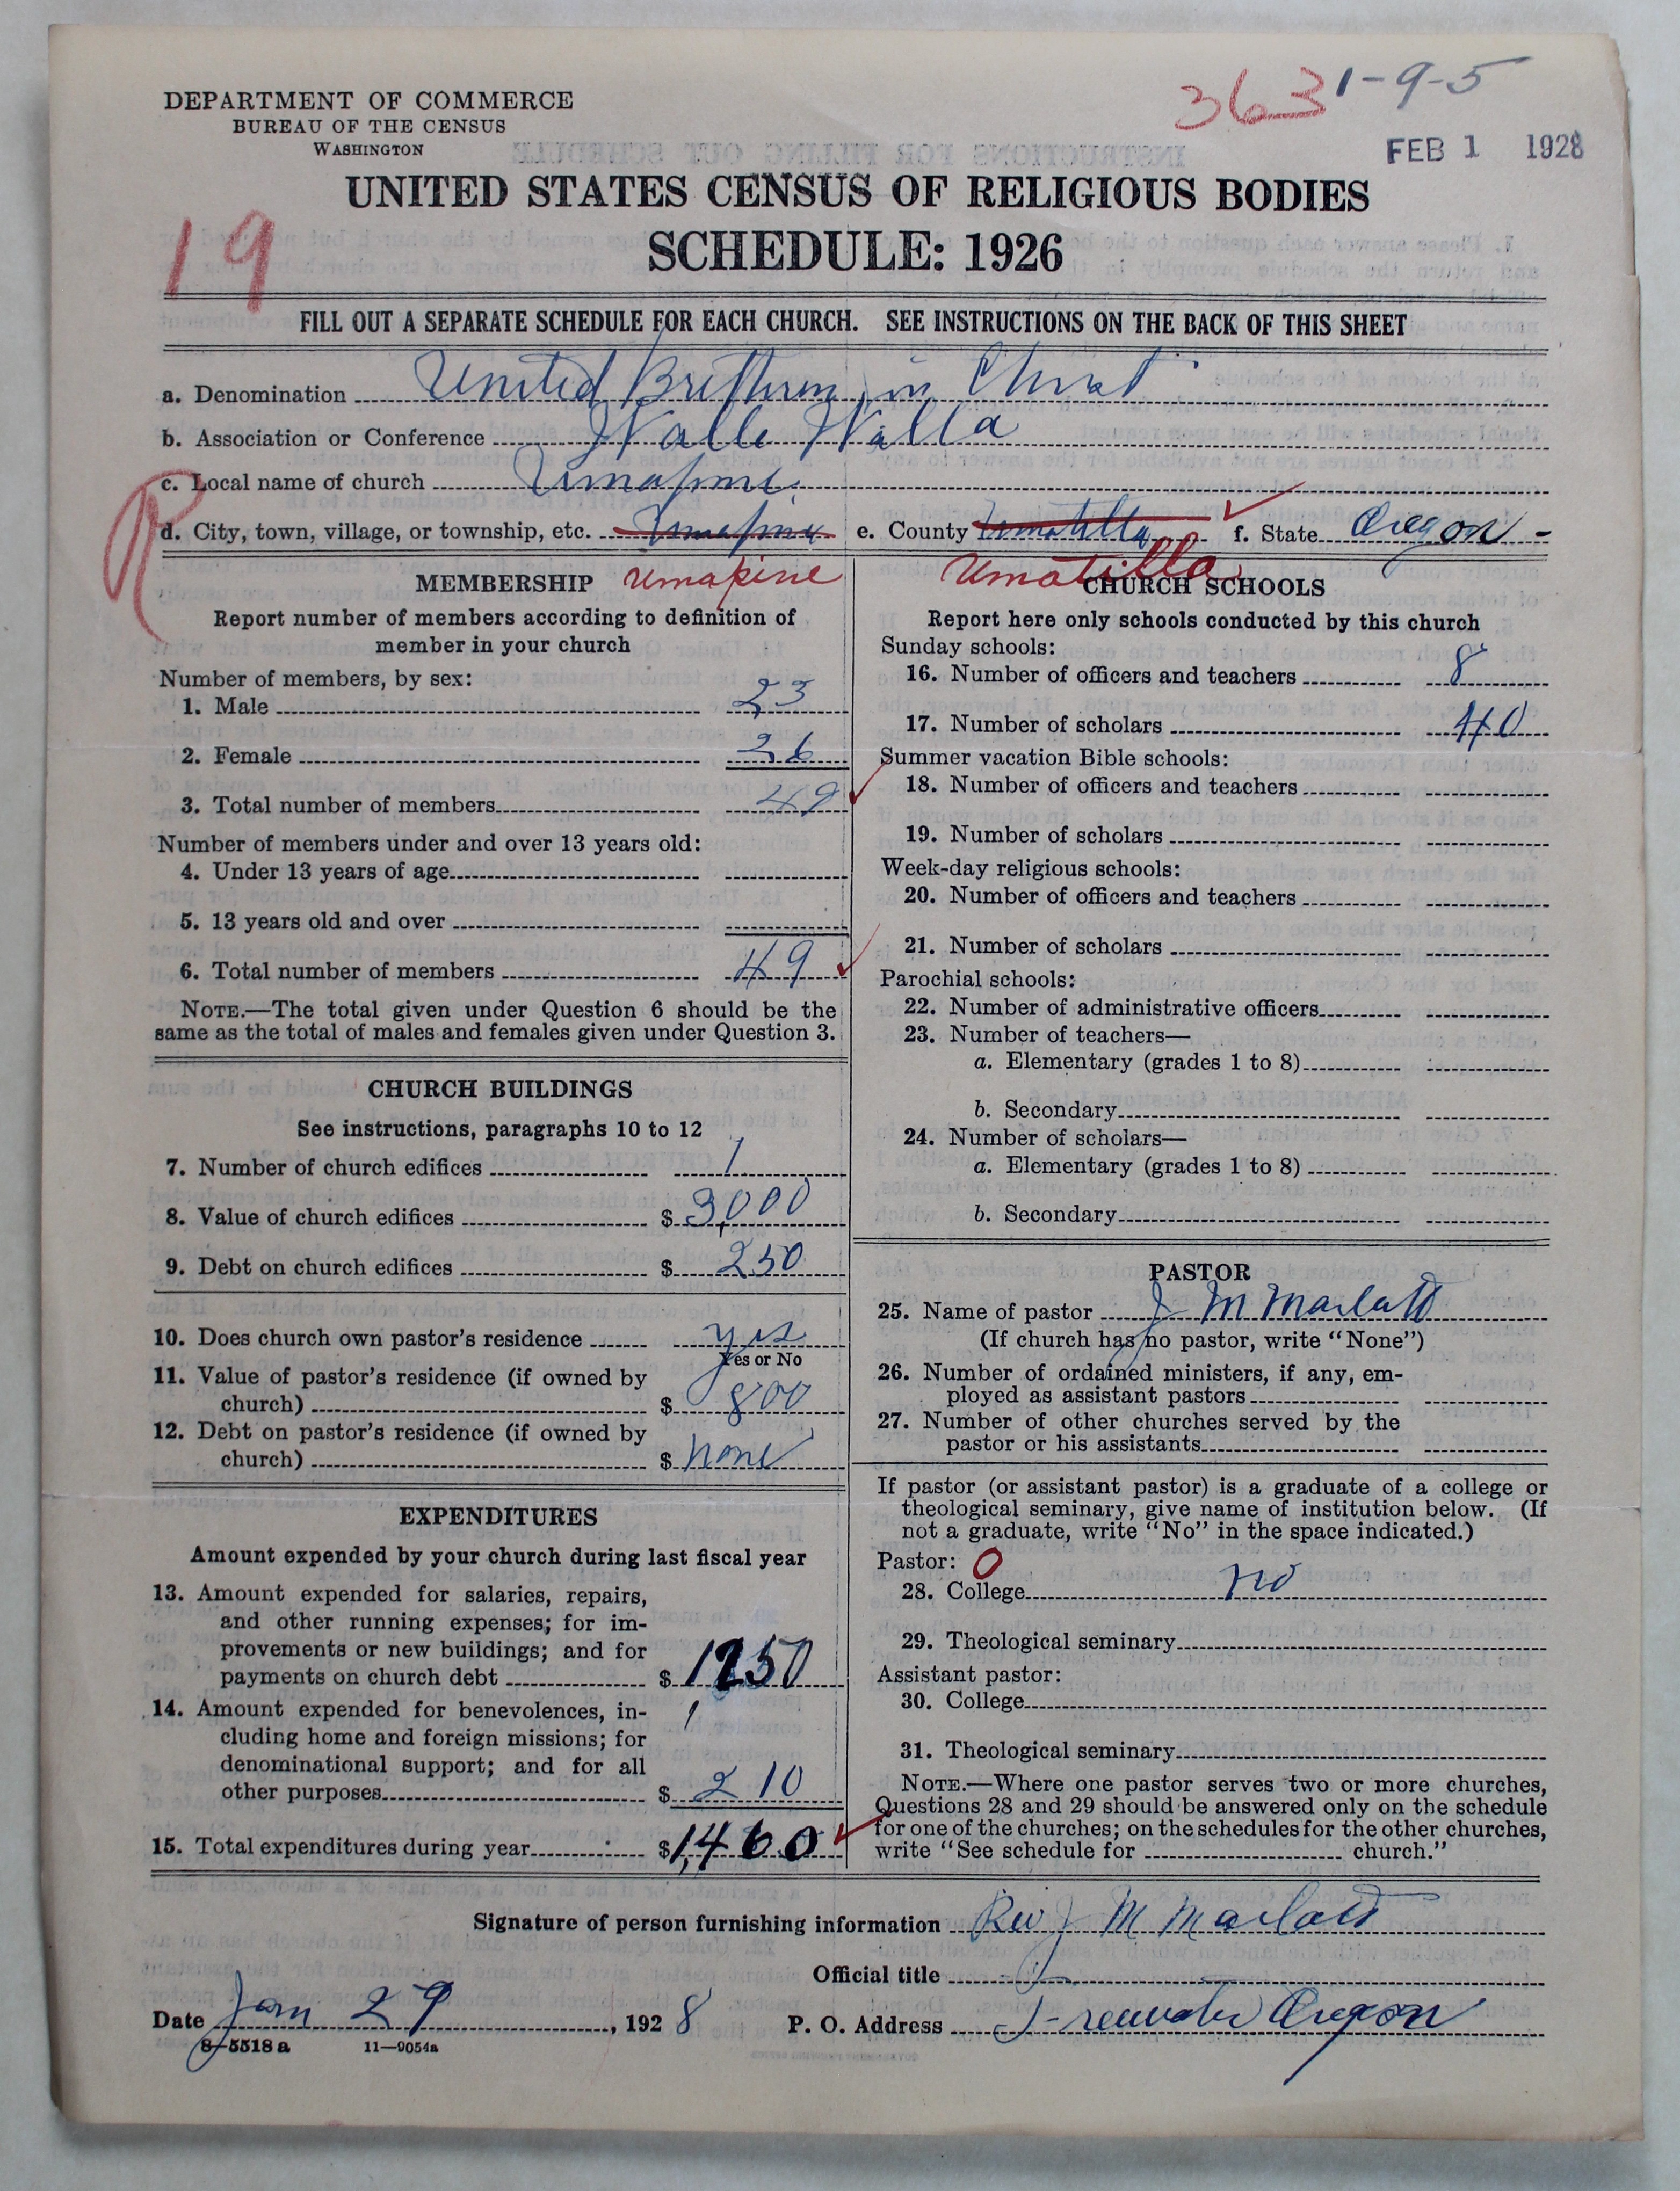 DEPARTMENT OF COMMERCE
BUREAU OF THE CENSUS
WASHINGTON
363 1-9-5
FEB 1 1928
UNITED STATES CENSUS OF RELIGIOUS BODIES
SCHEDULE: 1926
19
FILL OUT A SEPARATE SCHEDULE FOR EACH CHURCH. SEE INSTRUCTIONS ON THE BACK OF THIS SHEET
a. Denomination United Brethren in Christ
b. Association or Conference Walla Walla
c. Local name of church Umapine
d. City, town, village, or township, etc. Umapine e. County Umatilla f. State Oregon -
Umapine Umatilla
MEMBERSHIP
Report number of members according to definition of
member in your church
Number of members, by sex:
1. Male 23
2. Female 26
3. Total number of members 49
Number of members under and over 13 years old:
4. Under 13 years of age
5. 13 years old and over
6. Total number of members 49
NOTE.—The total given under Question 6 should be the
same as the total of males and females given under Question 3.
CHURCH BUILDINGS
See instructions, paragraphs 10 to 12
7. Number of church edifices 1
8. Value of church edifices $ 3,000
9. Debt on church edifices $ 250
10. Does church own pastor's residence yes
Yes or No
11. Value of pastor's residence (if owned by
church) $ 800
12. Debt on pastor's residence (if owned by
church) $ none
EXPENDITURES
Amount expended by your church during last fiscal year
13. Amount expended for salaries, repairs,
and other running expenses; for im-
provements or new buildings; and for
payments on church debt $ 1250
14. Amount expended for benevolences, in-
cluding home and foreign missions; for
denominational support; and for all
other purposes $ 210
15. Total expenditures during year $ 1,460
CHURCH SCHOOLS
Report here only schools conducted by this church
Sunday schools:
16. Number of officers and teachers 8
17. Number of scholars 40
Summer vacation Bible schools:
18. Number of officers and teachers
19. Number of scholars
Week-day religious schools:
20. Number of officers and teachers
21. Number of scholars
Parochial schools:
22. Number of administrative officers
23. Number of teachers—
a. Elementary (grades 1 to 8)
b. Secondary
24. Number of scholars—
a. Elementary (grades 1 to 8)
b. Secondary
PASTOR
25. Name of pastor J M Marlatt
(If church has no pastor, write "None")
26. Number of ordained ministers, if any, em-
ployed as assistant pastors
27. Number of other churches served by the
pastor or his assistants
If pastor (or assistant pastor) is a graduate of a college or
theological seminary, give name of institution below. (If
not a graduate, write "No" in the space indicated.)
Pastor: O
28. College no
29. Theological seminary
Assistant pastor:
30. College
31. Theological seminary
NOTE.—Where one pastor serves two or more churches,
Questions 28 and 29 should be answered only on the schedule
for one of the churches; on the schedules for the other churches,
write "See schedule for church."
Signature of person furnishing information Rev J M Marlatt
Official title
Date Jan 29, 1928 P. O. Address Freewater Oregon
8-5518 a 11—9054a